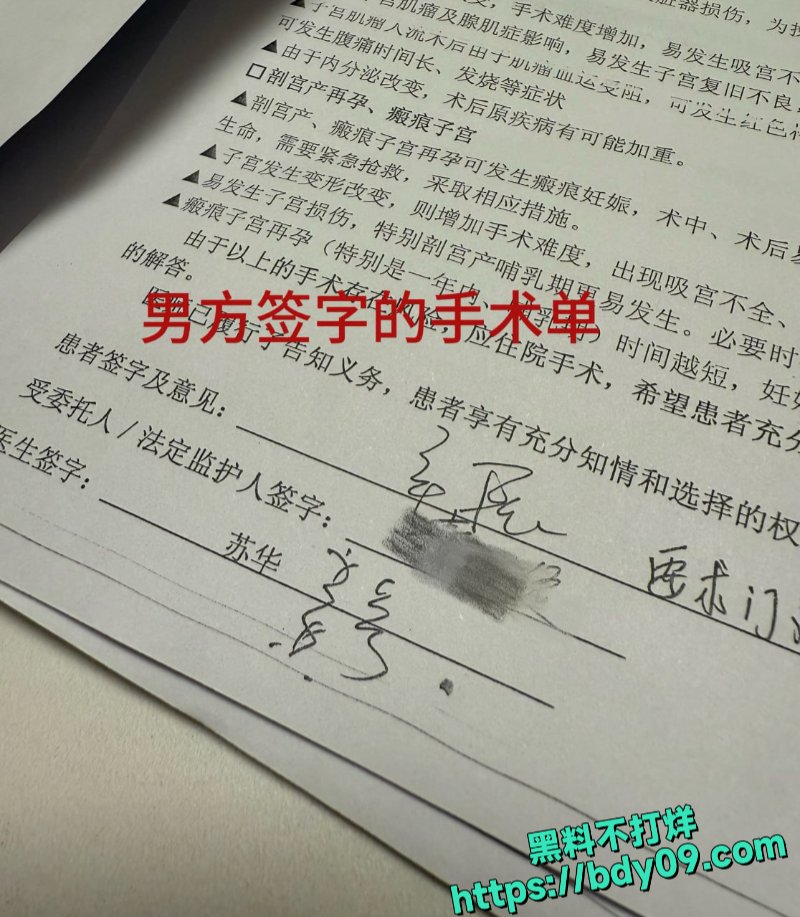 手术难度增加,易发生吸宫不
肌瘤及腺肌症影响,易发生子宫复旧不良,
▲子宫肌瘤人流术后由于肌瘤血运受阻,可发生红色
可发生腹痛时间长、发烧等症状
▲由于内分泌改变,术后原疾病有可能加重。
□剖宫产再孕、瘢痕子宫
▲剖宫产、瘢痕子宫再孕可发生瘢痕妊娠,术中、术后易
生命,需要紧急抢救,采取相应措施。
▲子宫发生变形改变,则增加手术难度,出现吸宫不全、
▲易发生子宫损伤,特别剖宫产哺乳期更易发生。必要时
▲瘢痕子宫再孕(特别是一年内、哺乳期)时间越短,妊娠
由于以上的手术存在风险,应住院手术,希望患者充分
的解答。
医师已履行了告知义务,患者享有充分知情和选择的权
男方签字的手术单
患者签字及意见:
要求门
受委托人/法定监护人签字:
医生签字:
苏华
黑料不打烊
https://bdy09.com